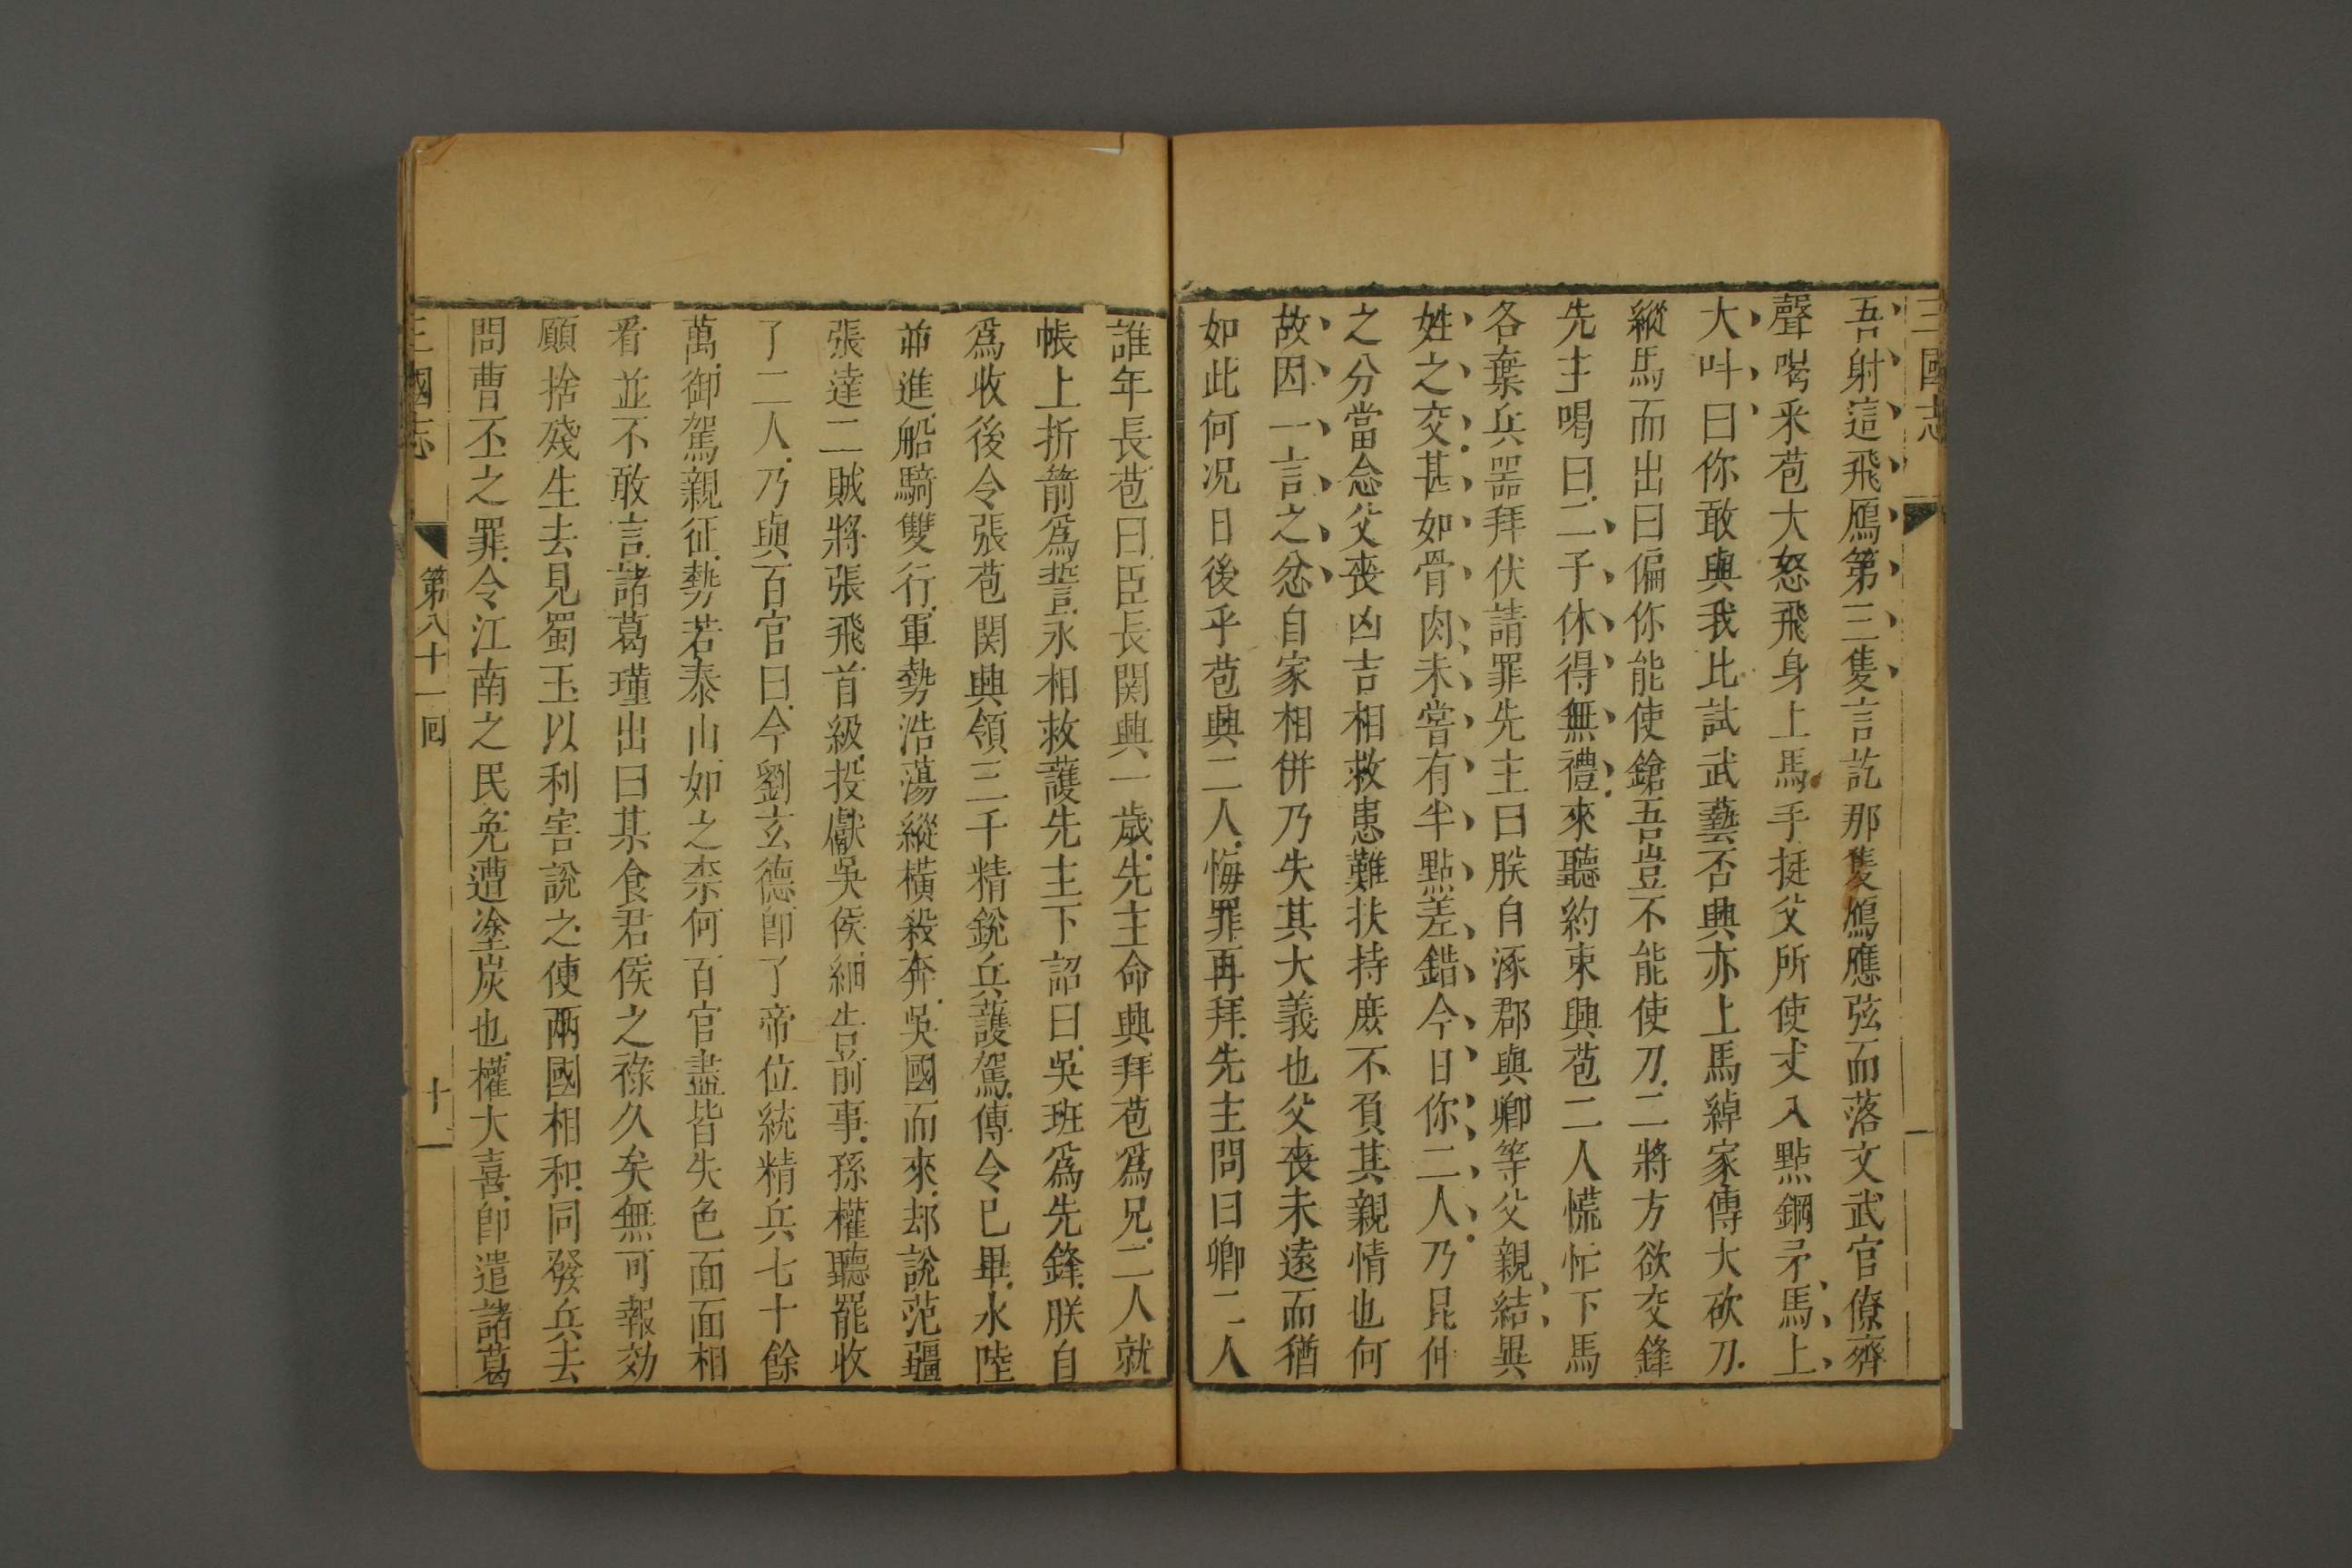 三國志
吾射這飛鴈第三隻言訖那隻鴈應弦而落文武官僚齊
聲喝釆苞大怒飛身上馬手挺父所使丈八點鋼矛馬上
大呌曰你敢與我比試武藝否興亦上馬綽家傳大砍刀
縱馬而出曰偏你能使鎗吾豈不能使刀二將方欲交鋒
先主喝曰二子休得無禮來聽約束興苞二人慌忙下馬
各棄兵噐拜伏請罪先主曰朕自涿郡與卿等父親結異
姓之交甚如骨肉未嘗有半點差錯今日你二人乃昆仲
之分當念父喪凶吉相救患難扶持庻不負其親情也何
故因一言之忿自家相併乃失其大義也父喪未遠而猶
如此何况日後乎苞興二人悔罪再拜先主問曰卿二人
誰年長苞曰臣長関興一歲先主命興拜苞爲兄二人就
帳上折箭爲誓永相救護先主下詔曰吳班爲先鋒朕自
爲收後令張苞関興領三千精銳兵護駕傳令已畢水陸
並進船騎雙行軍勢浩蕩縱橫殺奔吳國而來却說范疆
張達二賊將張飛首級投獻吳侯細告前事孫權聽罷收
了二人乃與百官曰今劉玄德卽了帝位統精兵七十餘
萬御駕親征勢若泰山如之柰何百官盡皆失色面面相
看並不敢言諸葛瑾出曰某食君侯之祿久矣無可報効
願捨殘生去見蜀主以利害說之使兩國相和同發兵去
問曹丕之罪令江南之民免遭塗炭也權大喜卽遣諸葛
三國志 第八十一囘 十